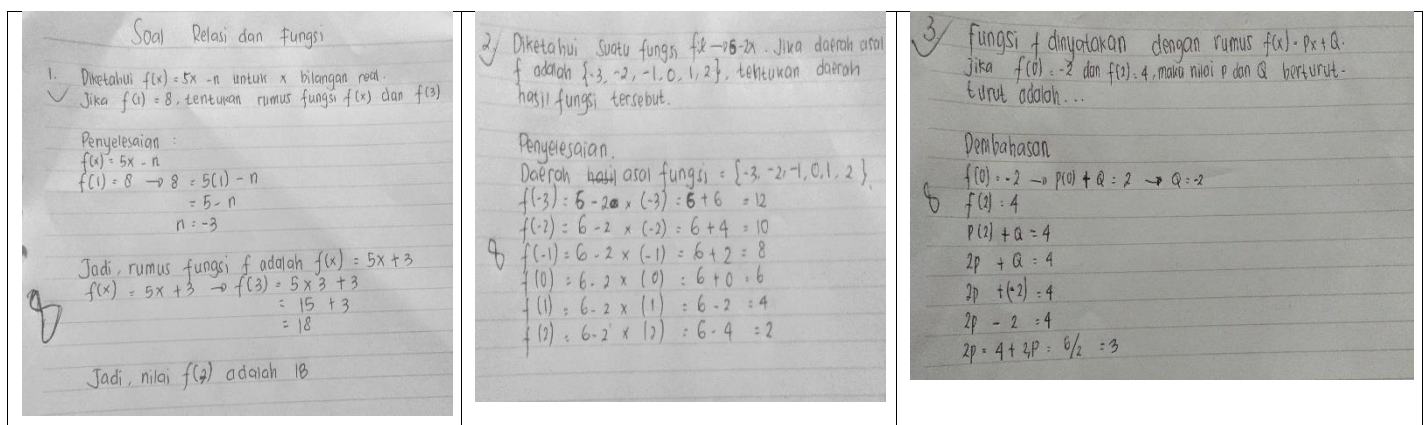 Soal Relasi dan fungsi
1. Diketahui f(x) = 5x - n untuk x bilangan real.
Jika f(1) = 8, tentukan rumus fungsi f(x) dan f(3)
Penyelesaian :
f(x) = 5x - n
f(1) = 8 → 8 = 5(1) - n
= 5 - n
n = -3
Jadi, rumus fungsi f adalah f(x) = 5x + 3
f(x) = 5x + 3 → f(3) = 5 x 3 + 3
= 15 + 3
= 18
8
Jadi, nilai f(3) adalah 18
2, Diketahui suatu fungsi f:x → 6-2x. Jika daerah asal
f adalah {-3, -2, -1, 0, 1, 2}, tentukan daerah
hasil fungsi tersebut.
Penyelesaian.
Daerah hasil asal fungsi = {-3, -2, -1, 0, 1, 2}.
f(-3) = 6 - 2 x (-3) = 6 + 6 = 12
f(-2) = 6 - 2 x (-2) = 6 + 4 = 10
8 f(-1) = 6 - 2 x (-1) = 6 + 2 = 8
f(0) = 6 - 2 x (0) = 6 + 0 = 6
f(1) = 6 - 2 x (1) = 6 - 2 = 4
f(2) = 6 - 2 x (2) = 6 - 4 = 2
3, fungsi f dinyatakan dengan rumus f(x) = Px + Q.
Jika f(0) = -2 dan f(2) = 4, maka nilai P dan Q berturut-
turut adalah...
Pembahasan
f(0) = -2 → P(0) + Q = 2 → Q = -2
8 f(2) = 4
P(2) + Q = 4
2p + Q = 4
2p + (-2) = 4
2p - 2 = 4
2p = 4 + 2, P = 6/2 = 3